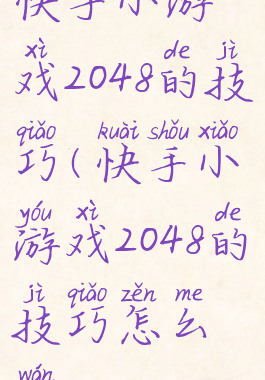 快手小游
xì de jì
戏2048的技
qiǎo kuài shǒu xiǎo
巧(快手小
yóu xì de
游戏2048的
jì qiǎo zěn me
技巧怎么
wán